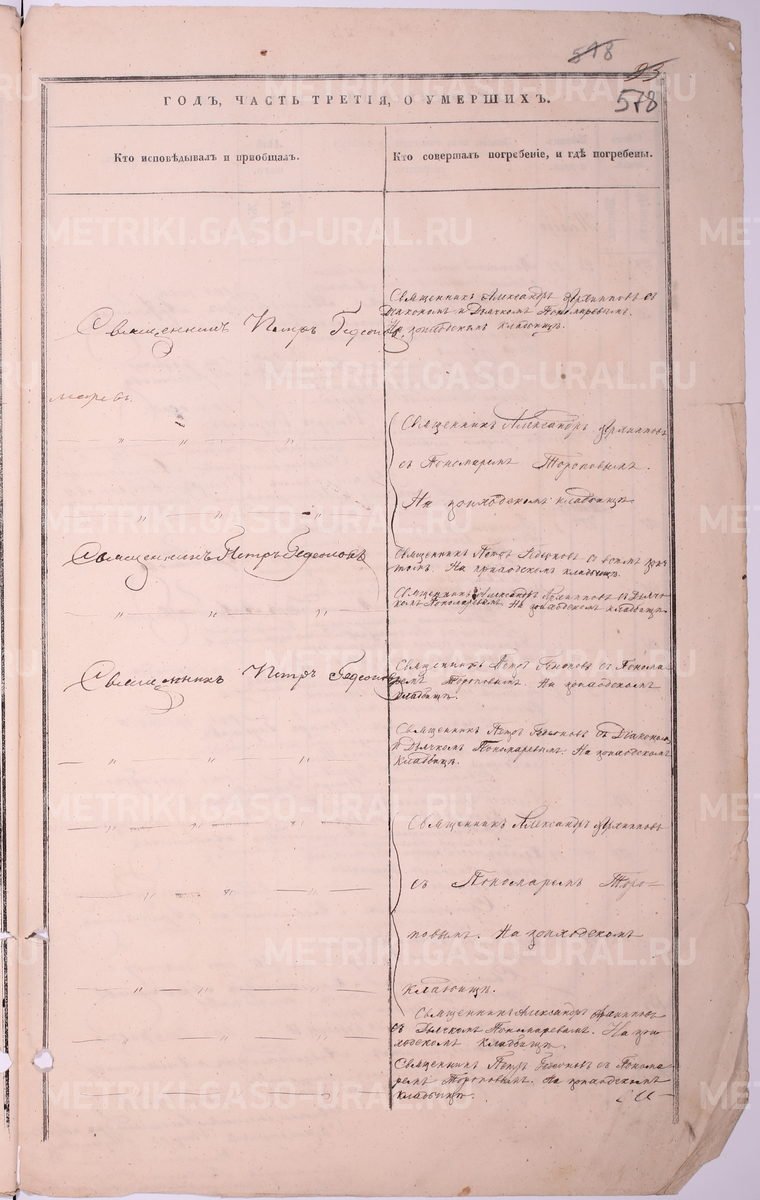 518
93
578
ГОДЪ, ЧАСТЬ ТРЕТІЯ, О УМЕРШИХЪ.
Кто исповѣдывалъ и пріобщалъ.
Кто совершалъ погребеніе, и гдѣ погребены.
Священникъ Петръ Гедеоновъ.
Священникъ Александръ Архипповъ съ
Діакономъ и Дьячкомъ Пономаревымъ.
На приходскомъ кладбищѣ.
Священникъ Александръ Архипповъ
съ Пономаремъ Тороповымъ.
На приходскомъ кладбищѣ
Священникъ Петръ Гедеоновъ
Священникъ Петръ Гедеоновъ съ всемъ прич-
томъ. На приходскомъ кладбищѣ.
Священникъ Александръ Архипповъ съ Дьяч-
комъ Пономаревымъ. На приходскомъ кладбищѣ.
Священникъ Петръ Гедеоновъ
Священникъ Петръ Гедеоновъ съ Понома-
ремъ Тороповымъ. На приходскомъ
кладбищѣ.
Священникъ Петръ Гедеоновъ съ Діакономъ
и Дьячкомъ Пономаревымъ. На приходскомъ
кладбищѣ.
Священникъ Александръ Архипповъ
съ Пономаремъ Торо-
повымъ. На приходскомъ
кладбищѣ.
Священникъ Александръ Архипповъ
съ Дьячкомъ Пономаревымъ. На при-
ходскомъ кладбищѣ.
Священникъ Петръ Гедеоновъ съ Понома-
ремъ Тороповымъ. На приходскомъ
кладбищѣ.
METRIKI.GASO-URAL.RU